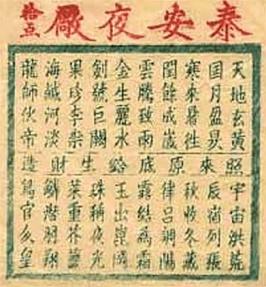 泰安夜廠
拾点
天地玄黃
月盈昃
寒來暑往
閏餘成歲
雲騰致雨
金生麗水
劍號巨闕
果珍李柰
海鹹河淡
龍師伙帝
照來原底給生財造
宇宙洪荒
辰宿列張
秋收冬藏
律呂調陽
露結為霜
玉出崑岡
珠稱夜光
菜重芥薑
鱗潛羽翔
官皇